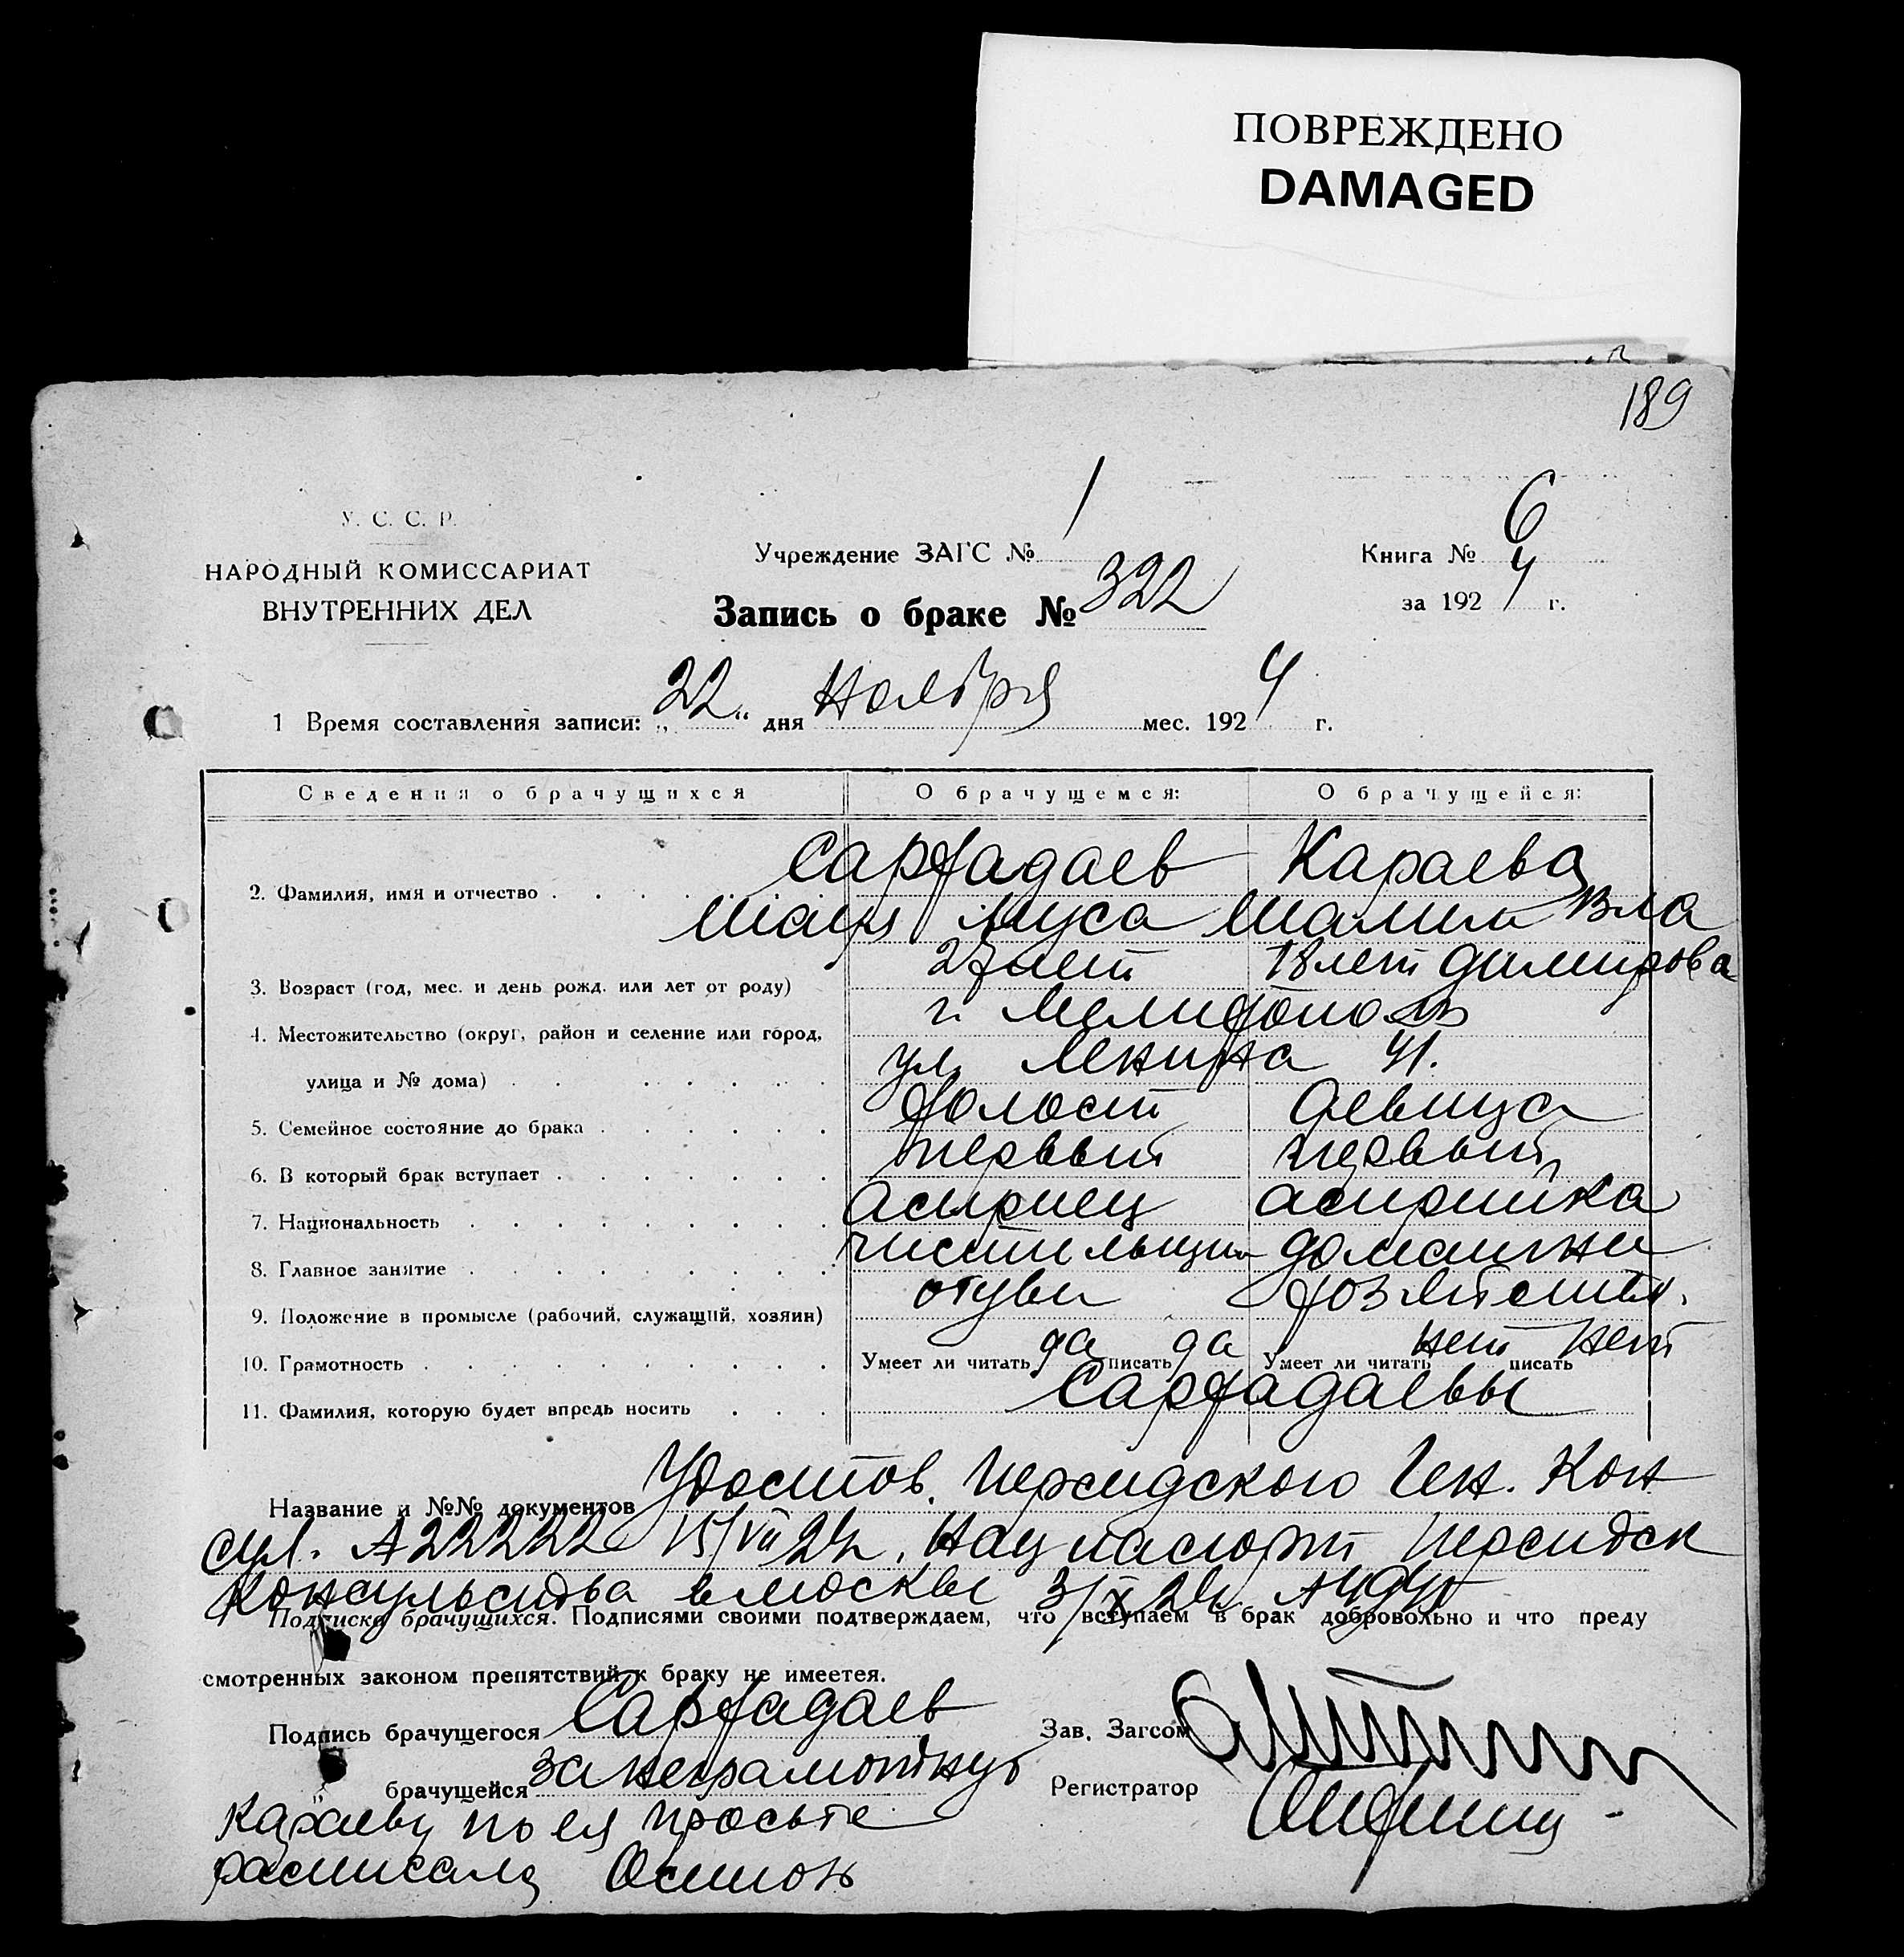 ПОВРЕЖДЕНО
DAMAGED
189
У. С. С. Р.
НАРОДНЫЙ КОМИССАРИАТ
ВНУТРЕННИХ ДЕЛ
Учреждение ЗАГС № 1
Книга № 6
за 1924 г.
Запись о браке № 322
1 Время составления записи: „22“ дня Ноября мес. 1924 г.
Сведения о брачущихся О брачущемся: О брачущейся:
Сарфадаев Караева
2. Фамилия, имя и отчество
Муса Шамли Вла
27 лет 18 лет димирова
3. Возраст (год, мес. и день рожд. или лет от роду)
г. Мелитополь
4. Местожительство (округ, район и селение или город,
ул. Ленина 41.
улица и № дома)
Холост Девица
5. Семейное состояние до брака
первый первый
6. В который брак вступает
Асириец асирийка
7. Национальность
чистильщик домашне
8. Главное занятие
обуви хозяйствен.
9. Положение в промысле (рабочий, служащий, хозяин)
10. Грамотность Умеет ли читать да писать да Умеет ли читать нет писать нет
Сарфадаевы
11. Фамилия, которую будет впредь носить
Название и №№ документов Удостов. Персидского Ген. Кон
сул. А 22222 15/VII 24 Нац паспорт Персидск
Консульства в Москве 3/X 24
Подписка брачущихся. Подписями своими подтверждаем, что вступаем в брак добровольно и что преду
смотренных законом препятствий к браку не имеется.
Подпись брачущегося Сарфадаев Зав. Загсом
„ брачущейся за неграмотную Регистратор
Караеву по ея просьбе
расписался